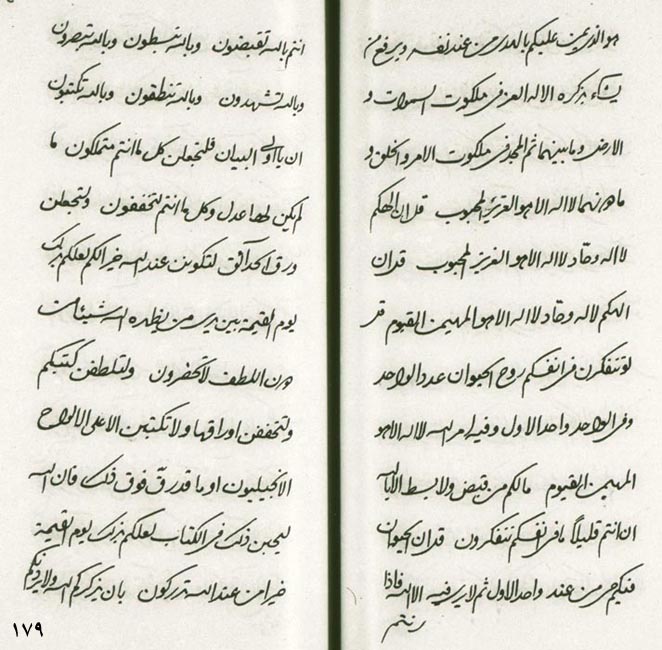 هو الذي يمن عليكم بالهدى من عند نفسه ويرفع من
يشاء بذكره الا له العز في ملكوت السموات و
الارض وما بينهما ثم المجد في ملكوت الامر والخلق و
ما دونهما لا اله الا هو العزيز المحبوب قل ان الهكم
لاله وحاد لا اله الا هو العزيز المحبوب قل ان
الهكم لاله وحاد لا اله الا هو المهيمن القيوم قل
لو تتفكرن في انفسكم روح الحيوان عدد الواحد
وفي الواحد واحد الاول وفيه امر الله لا اله الا هو
المهيمن القيوم ما لكم من قبض ولا بسط الا بالله
ان انتم قليلا ما في انفسكم تتفكرون قل ان الحيوان
فيكم حي من عند واحد الاول ثم لا يرى فيه الا الله فاذا
انتم بالله تقبضون وبالله تبسطون وبالله تبصرون
وبالله تشهدون وبالله تنطقون وبالله تكتبون
ان يا اولي البيان فلتجعلن كل ما انتم متملكون ما
لم يكن لها عدل وكل ما انتم لتخففون ولتجعلن
ورق الحدائق لتكونن عند الله خيرا لكم لعلكم بذلك
يوم القيمة بين يدي من يظهره الله شيئا من
دون اللطف لا تحضرون ولتلطفن كتبكم
ولتخففن اوراقها ولا تكتبن الا على الالواح
الانجيليون او ما قدر فوق ذلك فان الله
ليحبن ذلك في الكتاب لعلكم بذلك يوم القيمة
خيرا من عند الله تدركون بان يذكركم الله ولا يردنكم
١٧٩